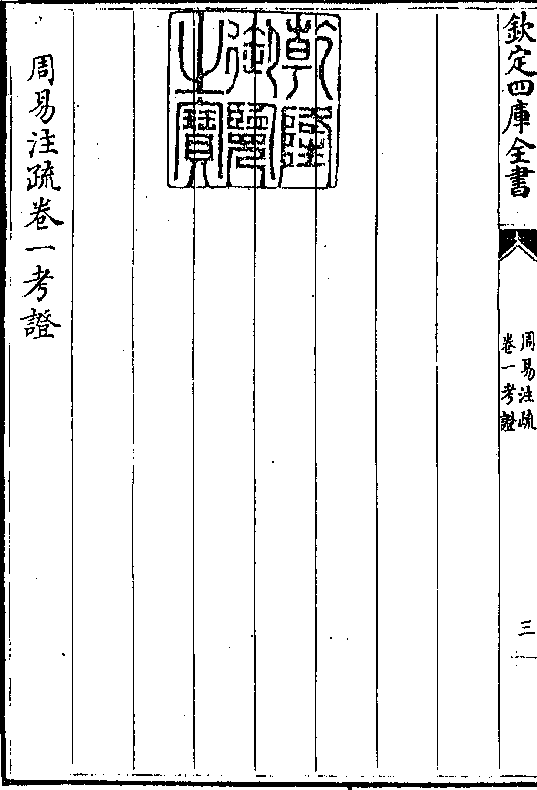 欽定四庫全書
周易注疏
卷一考證
三
乾隆
御覽
之寶
周易注疏卷一考證